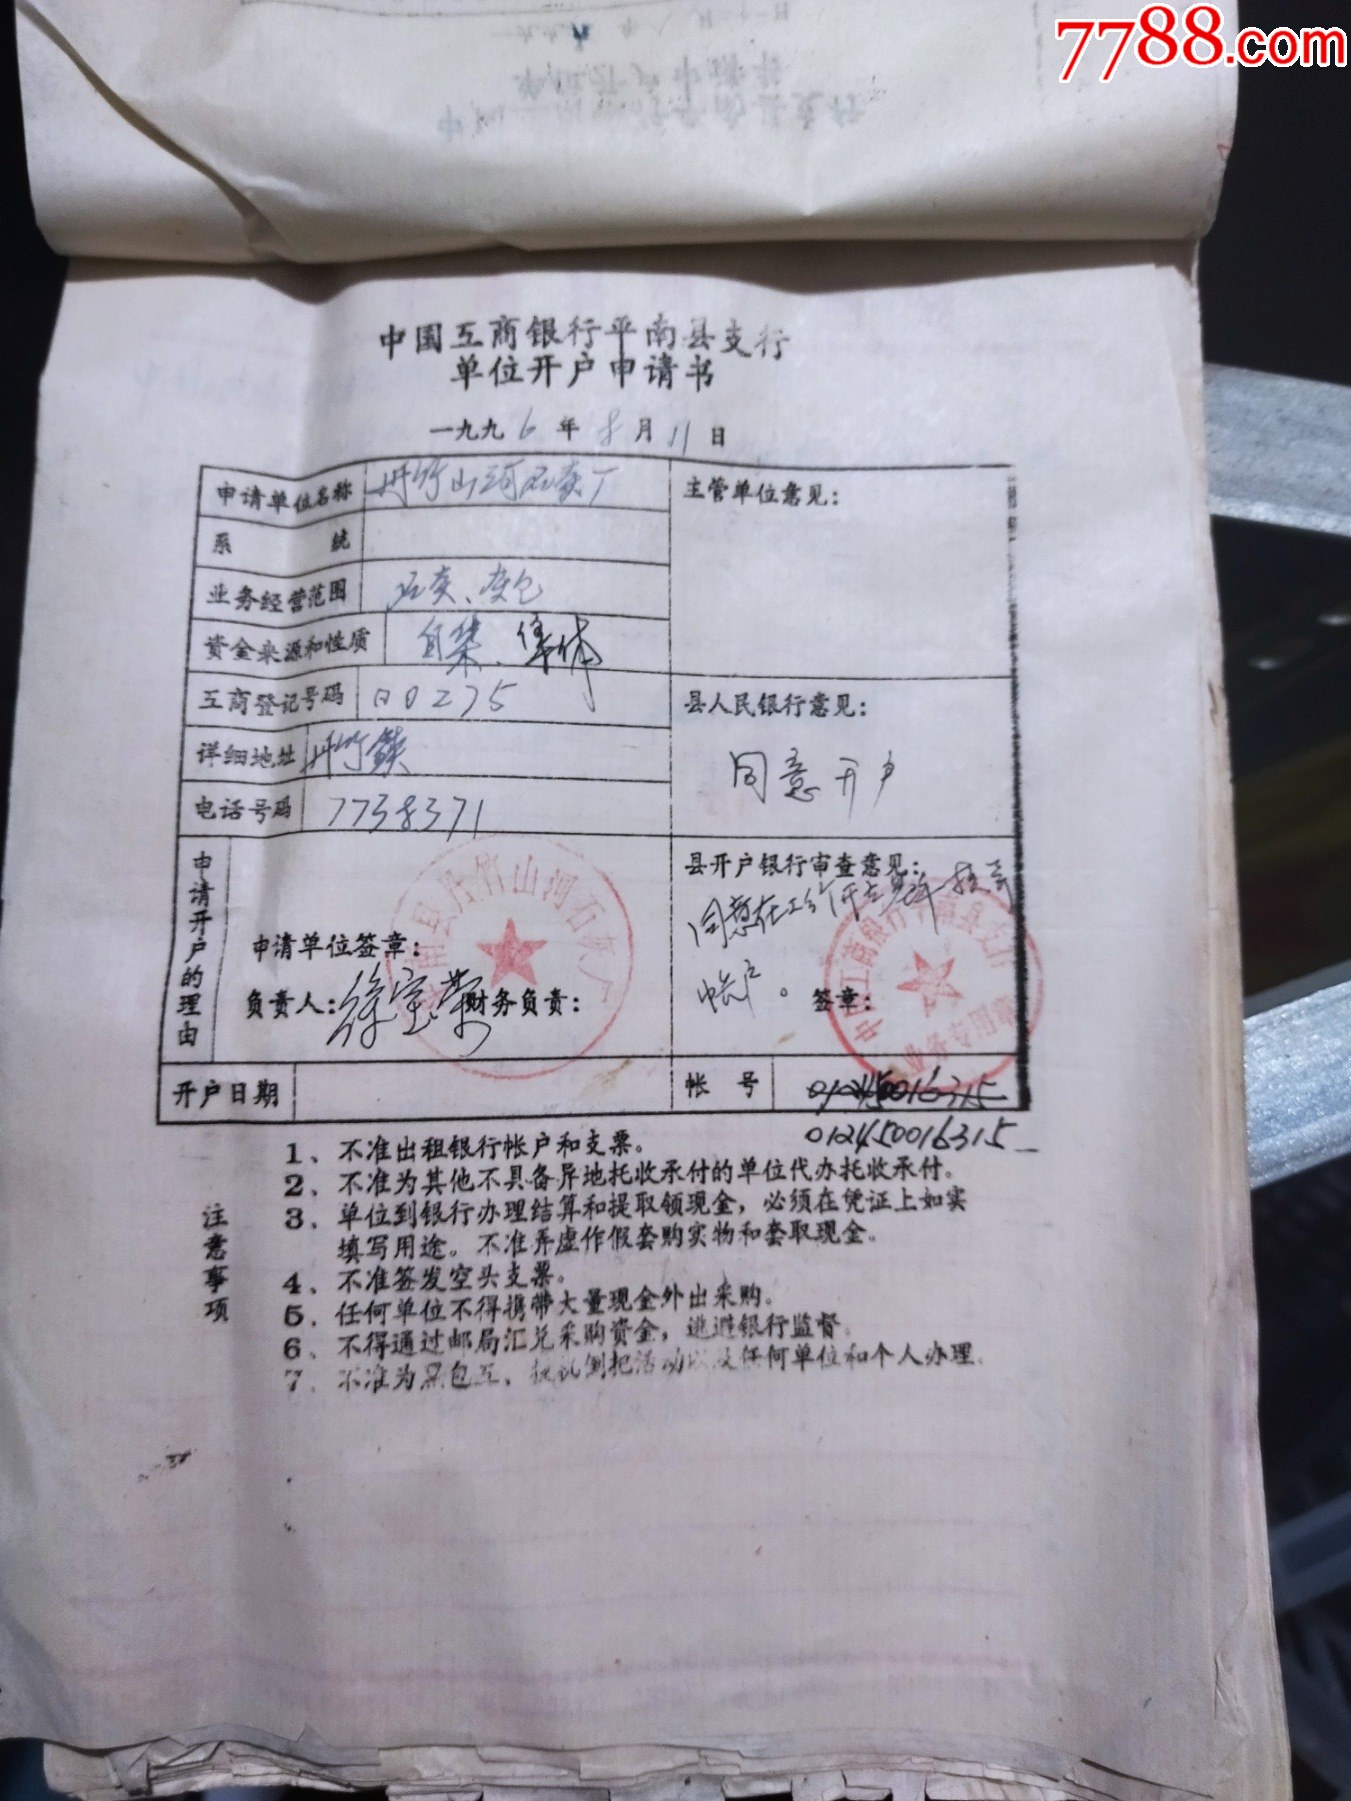 7788.com
中国工商银行平南县支行
单位开户申请书
一九九6年8月11日
申请单位名称 丹竹山河石灰厂
主管单位意见：
系统
业务经营范围 石灰、灰包
资金来源和性质 自筹、集体
工商登记号码 00275
县人民银行意见：
同意开户
详细地址 丹竹镇
电话号码 7738371
申请开户的理由
县开户银行审查意见：
同意在工
帐户。 签章：
申请单位签章：
负责人：徐宝荣 财务负责：
平南县丹竹山河石灰厂
中国工商银行平南县支行
业务专用章
开户日期
帐号 012450016315
012450016315
注意事项
1、不准出租银行帐户和支票。
2、不准为其他不具备异地托收承付的单位代办托收承付。
3、单位到银行办理结算和提取领现金，必须在凭证上如实
填写用途。不准弄虚作假套购实物和套取现金。
4、不准签发空头支票。
5、任何单位不得携带大量现金外出采购。
6、不得通过邮局汇兑采购资金，逃避银行监督。
7、不准为黑包工、投机倒把活动以及任何单位和个人办理。